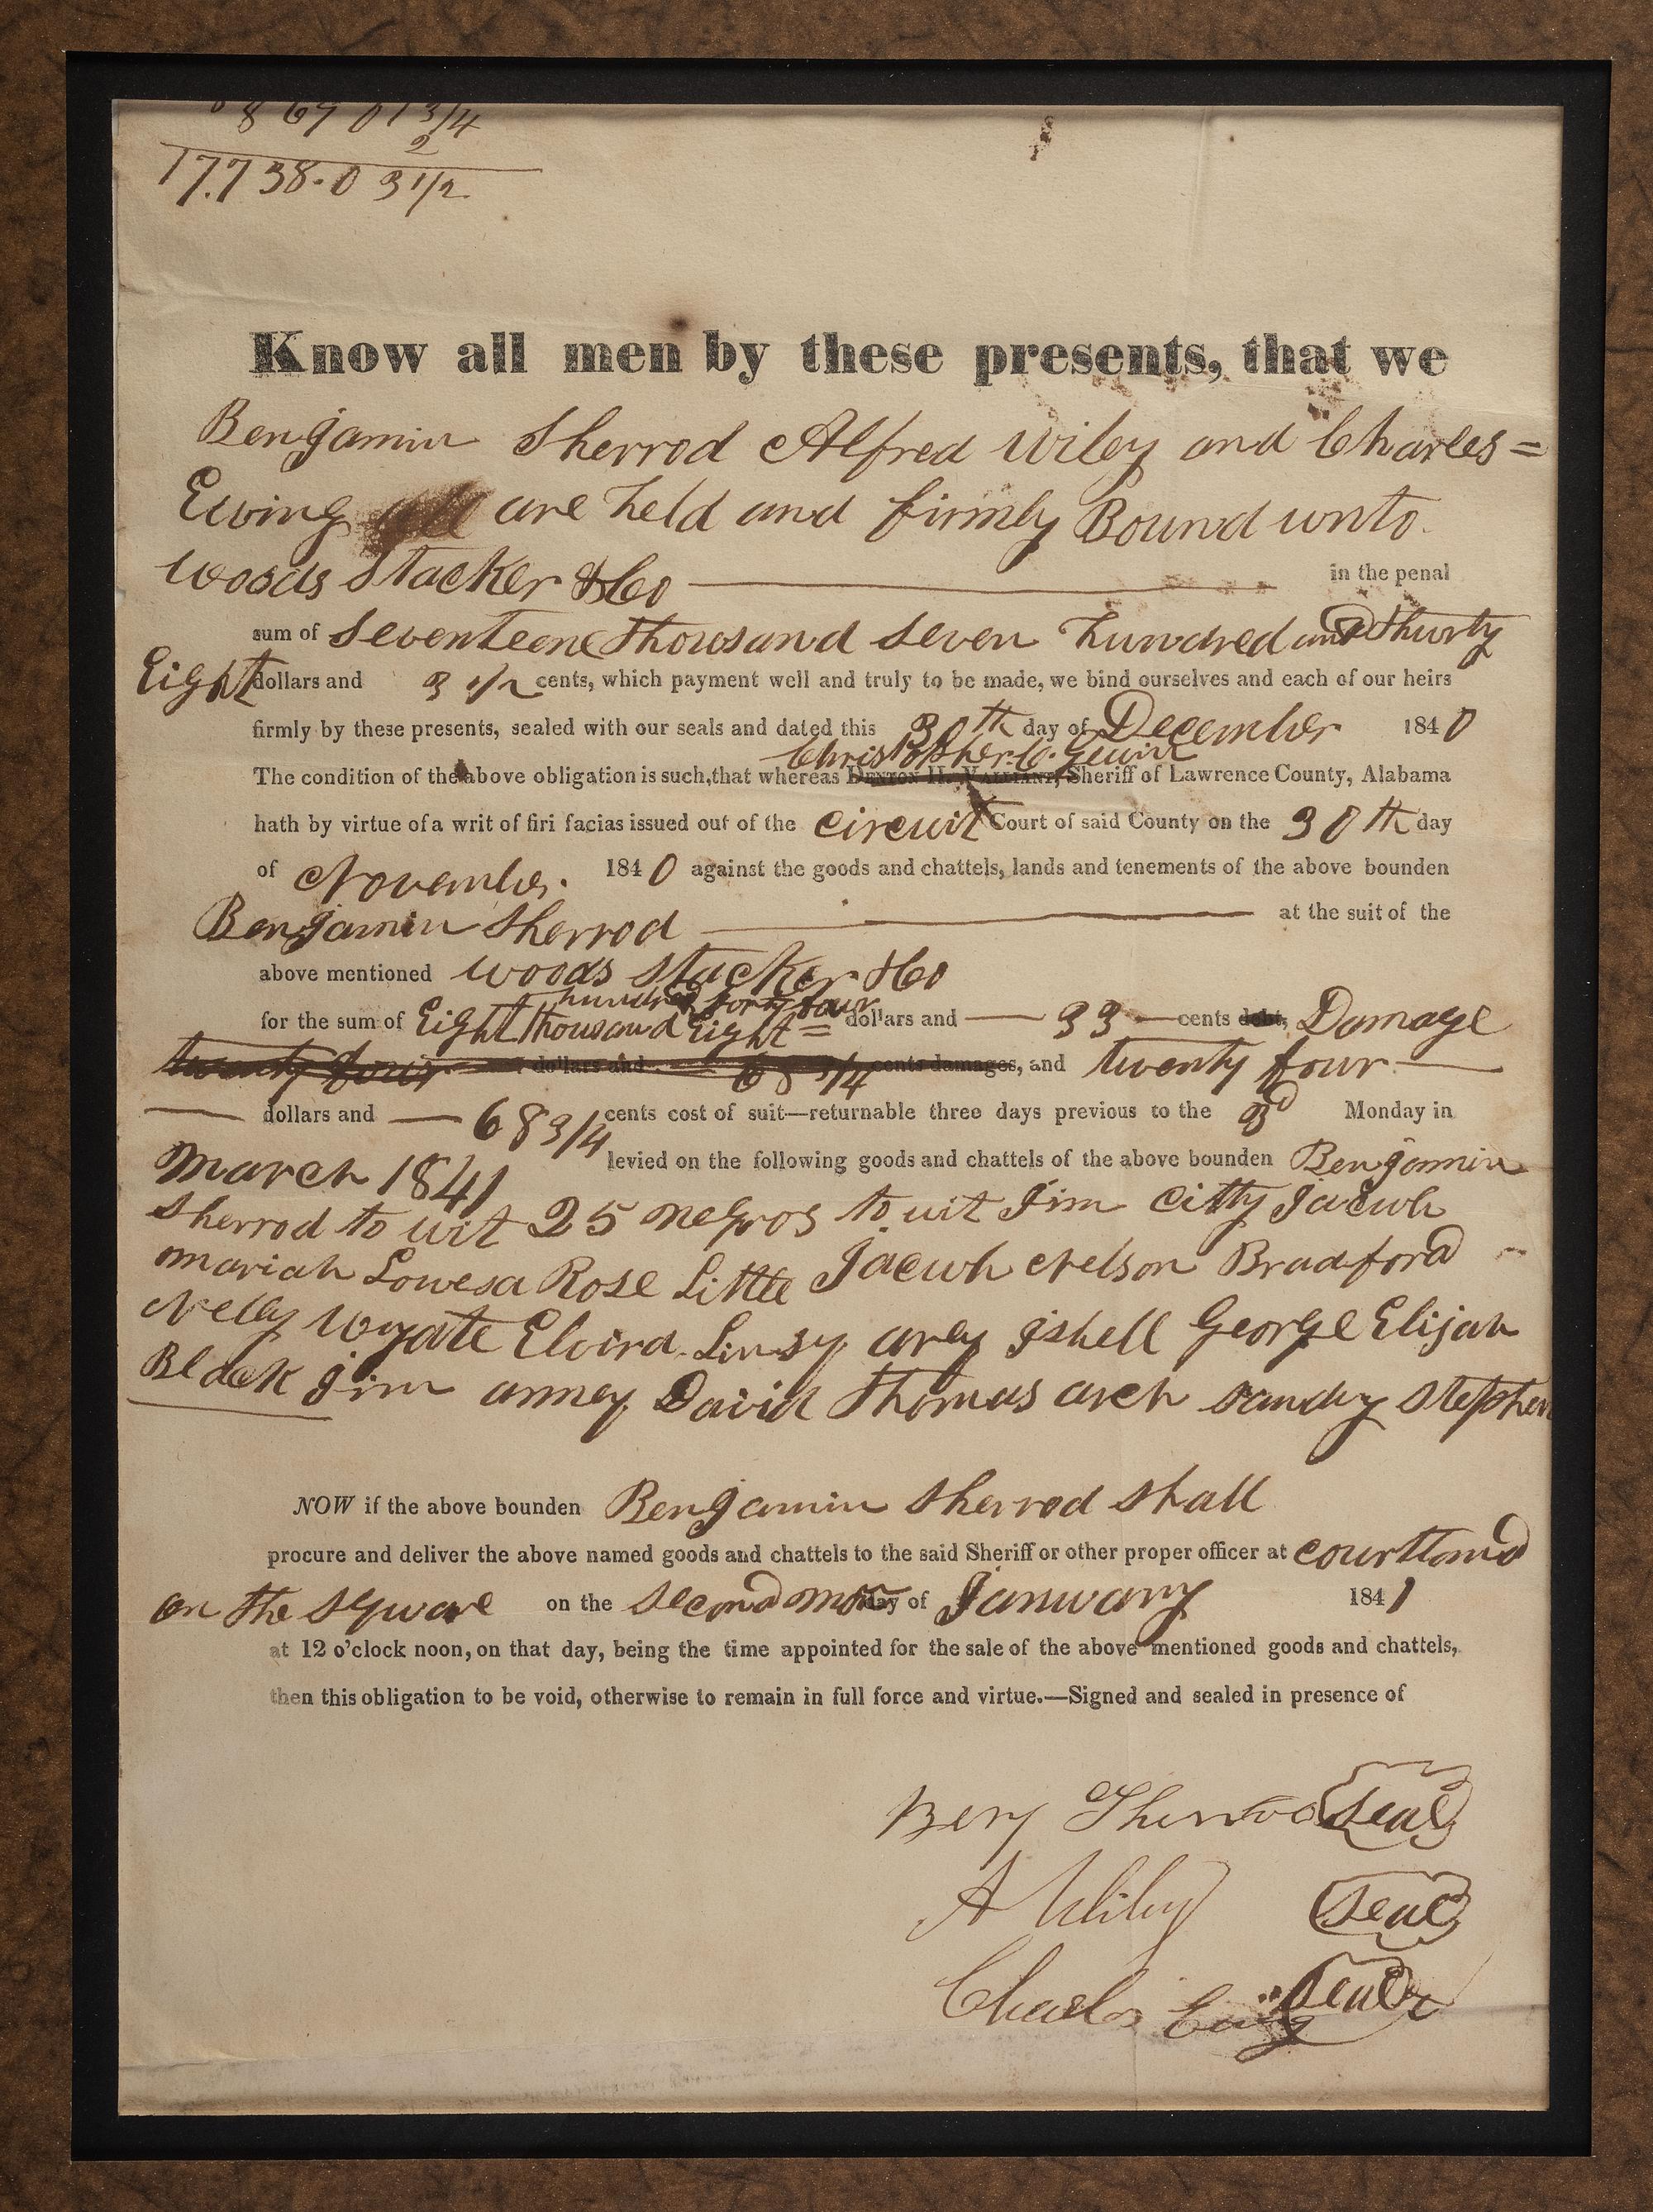 8 69 01 3/4
2
17.738.03 1/2
Know all men by these presents, that we
Benjamin Sherrod Alfred Wiley and Charles =
Ewing are held and firmly Bound unto
Woods Stacker & Co in the penal
sum of Seventeene Thousand Seven Hundred and Thirty
Eight dollars and 3 1/2 cents, which payment well and truly to be made, we bind ourselves and each of our heirs
firmly by these presents, sealed with our seals and dated this 30th day of December 1840
Christopher C. Gewin
The condition of the above obligation is such, that whereas Denton H. Valliant, Sheriff of Lawrence County, Alabama
hath by virtue of a writ of firi facias issued out of the circuit Court of said County on the 30th day
of November. 1840 against the goods and chattels, lands and tenements of the above bounden
Benjamin Sherrod at the suit of the
above mentioned Woods Stacker & Co
hundred forty four
for the sum of Eight Thousand Eight = dollars and — 33 — cents debt, Damage
twenty four dollars and 68 3/4 cents damages, and twenty four —
— dollars and — 68 3/4 cents cost of suit—returnable three days previous to the 3d Monday in
March 1841 levied on the following goods and chattels of the above bounden Benjamin
Sherrod to wit 25 negros to wit Jim Citty Jacub
Mariah Lowesa Rose Little Jacub Nelson Bradford
Nelly Wyate Elvira Linsy arey Isbell George Elijah
Black Jim anney David Thomas arch sandy Stephen
NOW if the above bounden Benjamin Sherrod shall
procure and deliver the above named goods and chattels to the said Sheriff or other proper officer at Courtland
on the square on the second monday of January 1841
at 12 o'clock noon, on that day, being the time appointed for the sale of the above mentioned goods and chattels,
then this obligation to be void, otherwise to remain in full force and virtue.—Signed and sealed in presence of
Benj Sherrod Seal
A Wiley Seal
Charles Ewing Seal